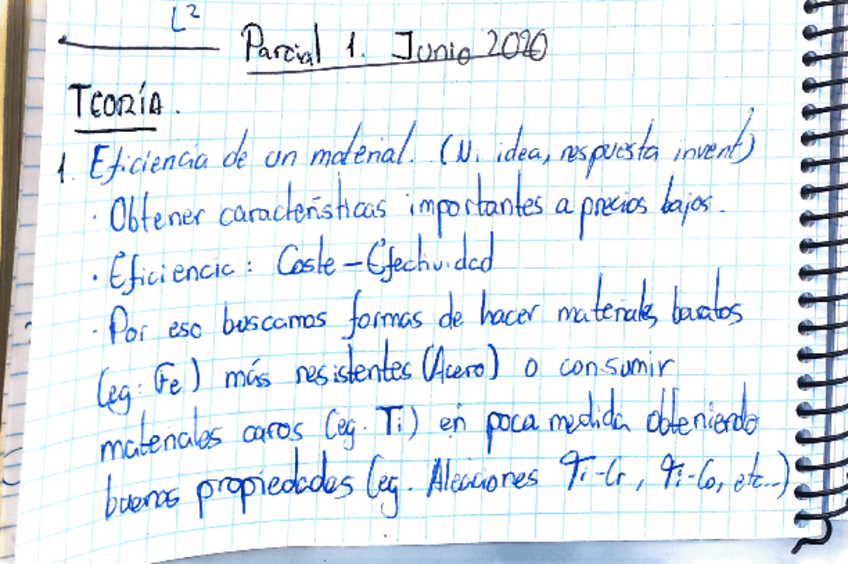 L²
Parcial 1. Junio 2020
TEORÍA.
1. Eficiencia de un material. (Ni idea, respuesta invent)
· Obtener características importantes a precios bajos.
· Eficiencia: Coste-Efectividad
· Por eso buscamos formas de hacer materiales baratos
(eg: Fe) más resistentes (Acero) o consumir
materiales caros (eg. Ti) en poca medida obteniendo
buenas propiedades (eg. Aleaciones Ti-Cr, Ti-Co, etc...)